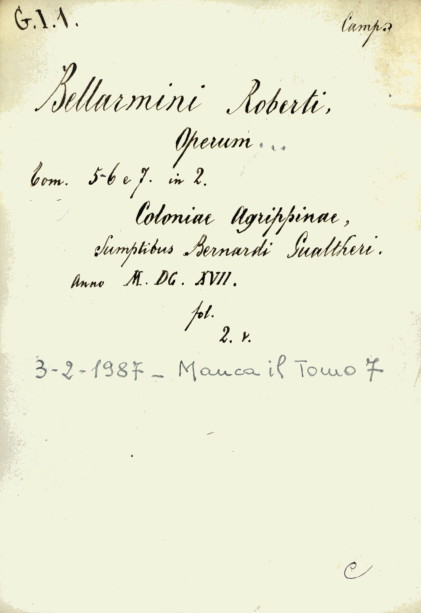 G.I.1.
Camp.
Bellarmini Roberti,
Operum...
Tom. 5-6 e 7. in 2.
Coloniae Agrippinae,
Sumptibus Bernardi Gualtheri.
Anno M. DC. XVII.
fol.
2. v.
3-2-1987 - Manca il Tomo 7
C